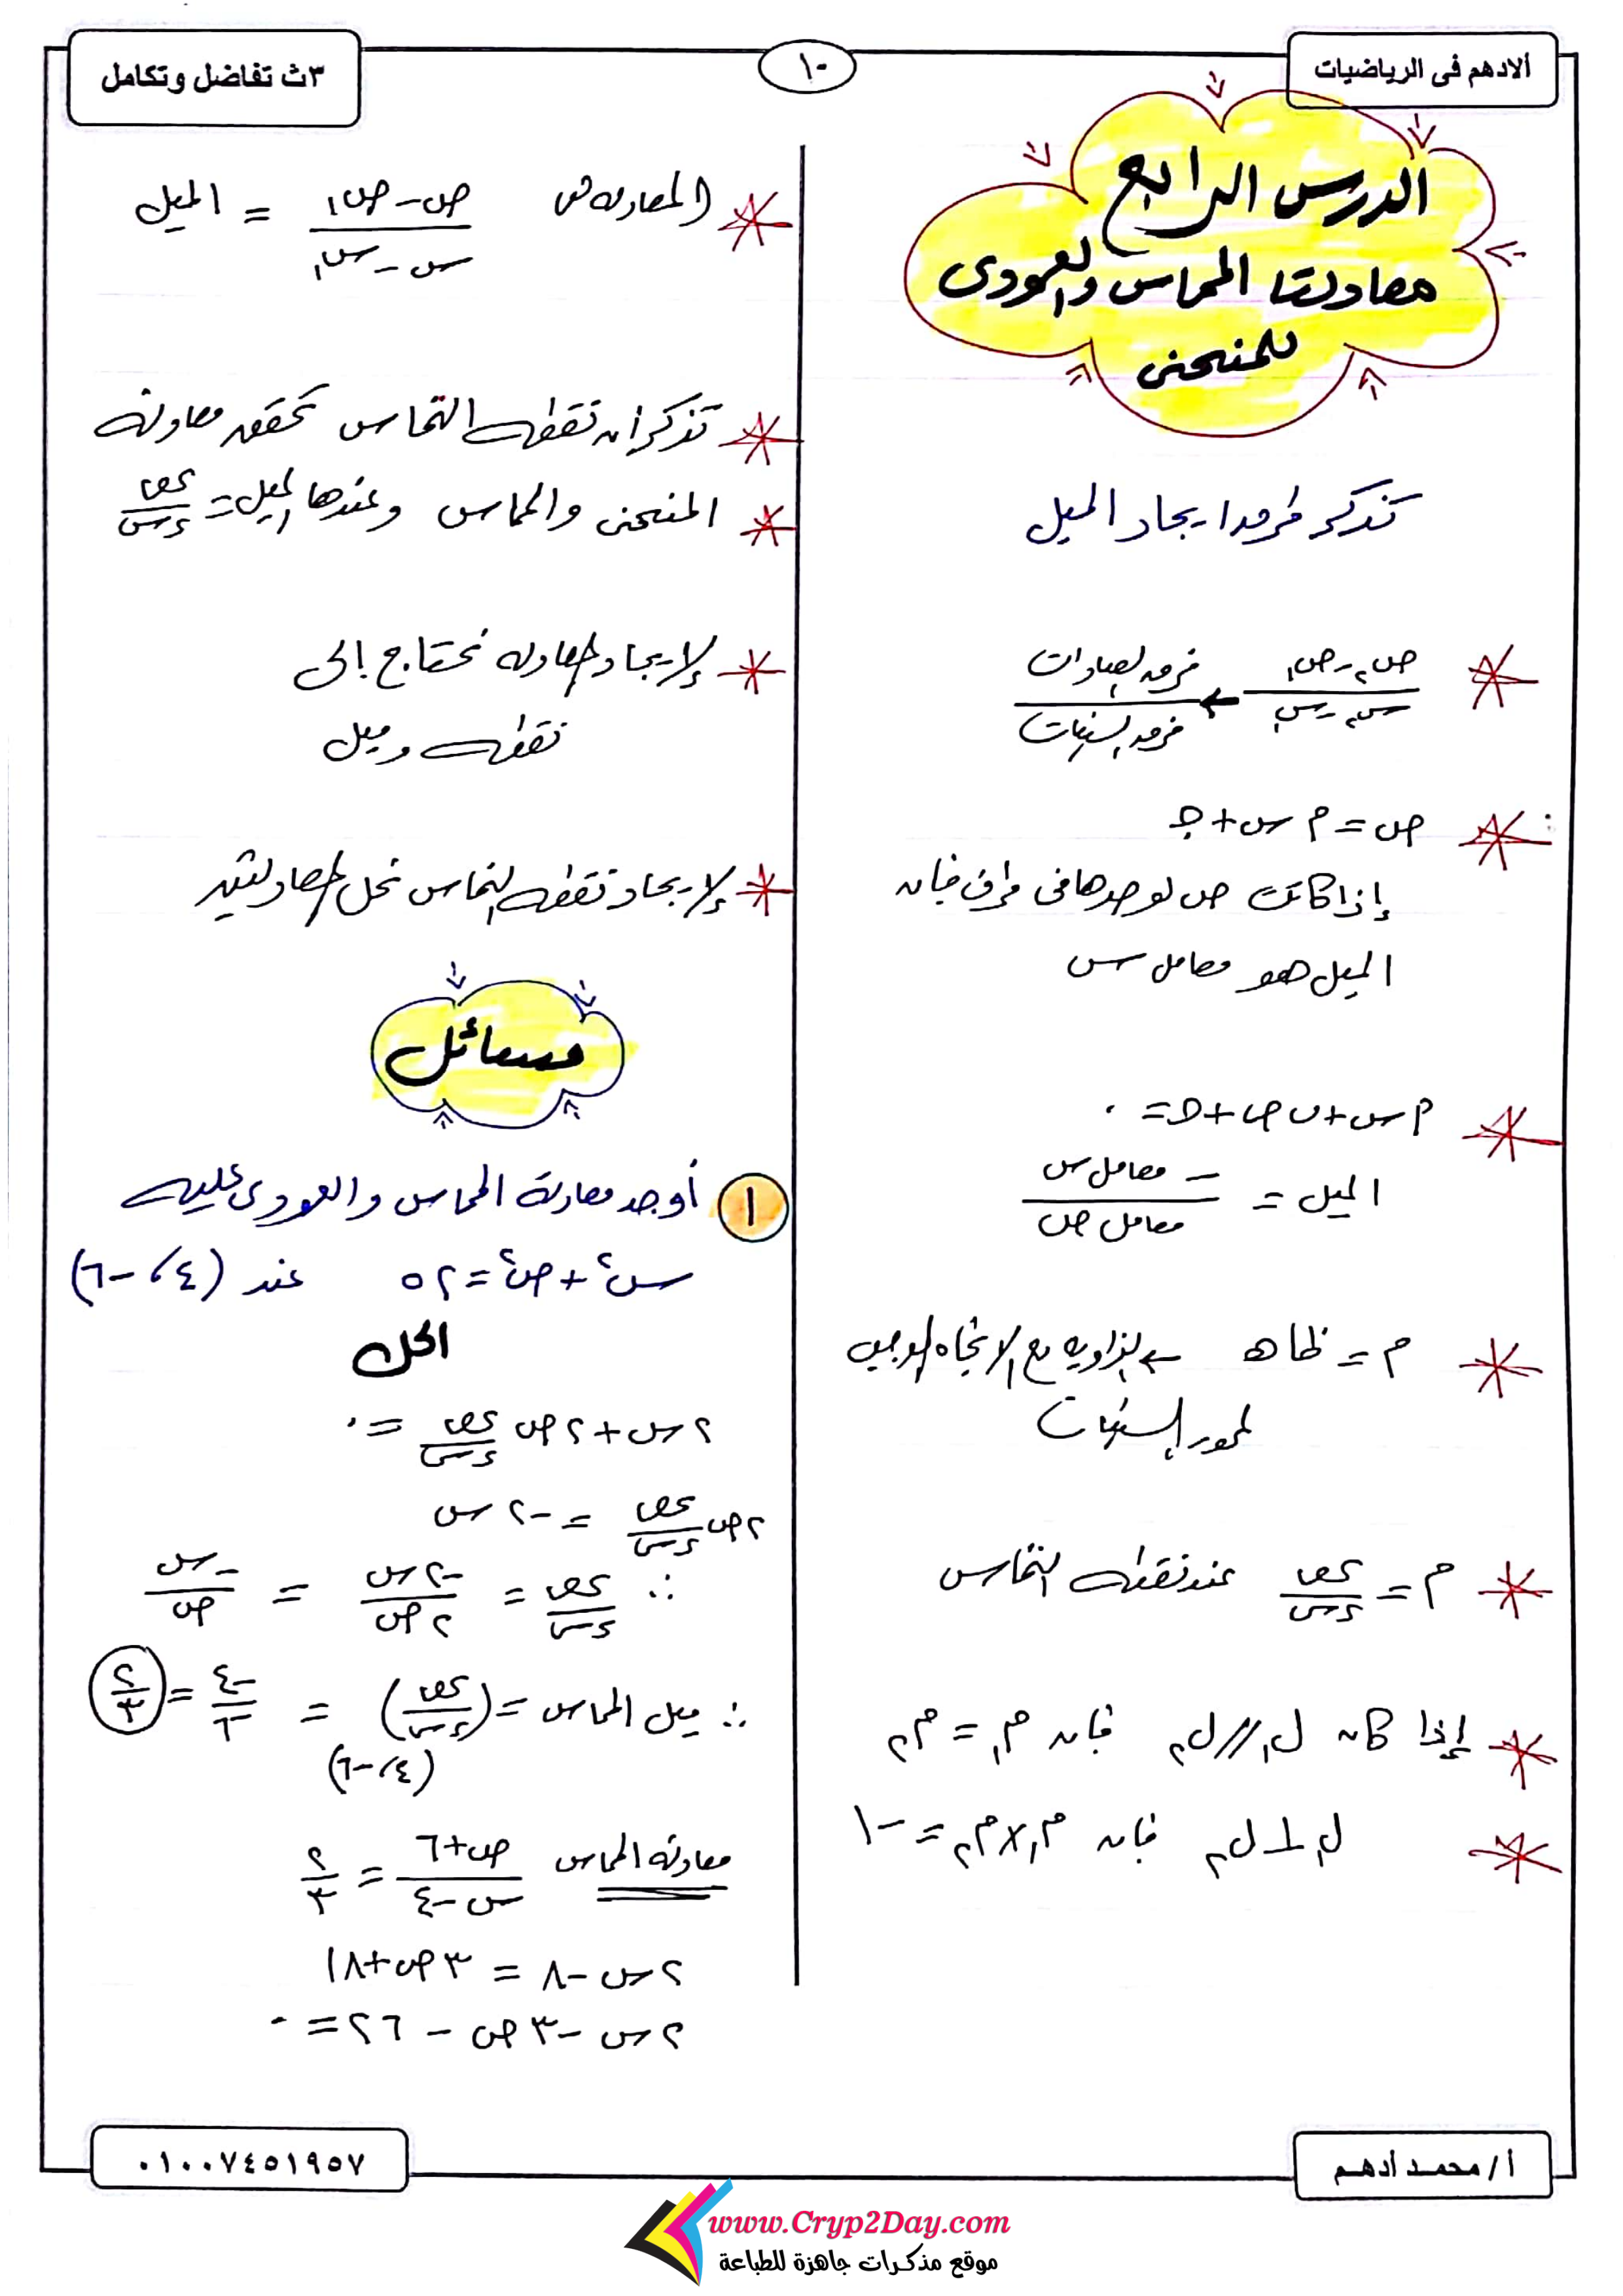 ألادهم فى الرياضيات
١٠
٣ث تفاضل وتكامل
الدرس الرابع
معادلتا المماس والعمودى
للمنحنى
تذكر طرق ايجاد الميل
ص٢ - ص١ / س٢ - س١ ← فرق الصادات / فرق السينات
ص = م س + جـ
إذا كانت ص لوحدها فى طرف فإن
الميل هو معامل س
م س + ب ص + جـ = ٠
الميل = - معامل س / معامل ص
م = ظا هـ ← الزاوية مع الاتجاه الموجب
لمحور السينات
م = ءص/ءس عند نقطة التماس
إذا كان ل١ // ل٢ فإن م١ = م٢
ل١ ⊥ ل٢ فإن م١ × م٢ = -١
المعادلة ص - ص١ / س - س١ = الميل
تذكر ان نقطة التماس تحقق معادلة
المنحنى والمماس وعندها الميل = ءص/ءس
لإيجاد المعادلة نحتاج إلى
نقطة وميل
لإيجاد نقطة التماس نحل المعادلتين
مسائل
١ أوجد معادلة المماس والعمودى عليه
س² + ص² = ٥٢ عند (٤، -٦)
الحل
٢س + ٢ص ءص/ءس = ٠
٢ص ءص/ءس = -٢س
∴ ءص/ءس = -٢س/٢ص = -س/ص
∴ ميل المماس = (ءص/ءس) = -٤/-٦ = ٢/٣
(٤، -٦)
معادلة المماس ص+٦ / س-٤ = ٢/٣
٢س - ٨ = ٣ص + ١٨
٢س - ٣ص - ٢٦ = ٠
أ/ محمد أدهم
٠١٠٠٧٤٥١٩٥٧
www.Cryp2Day.com
موقع مذكرات جاهزة للطباعة